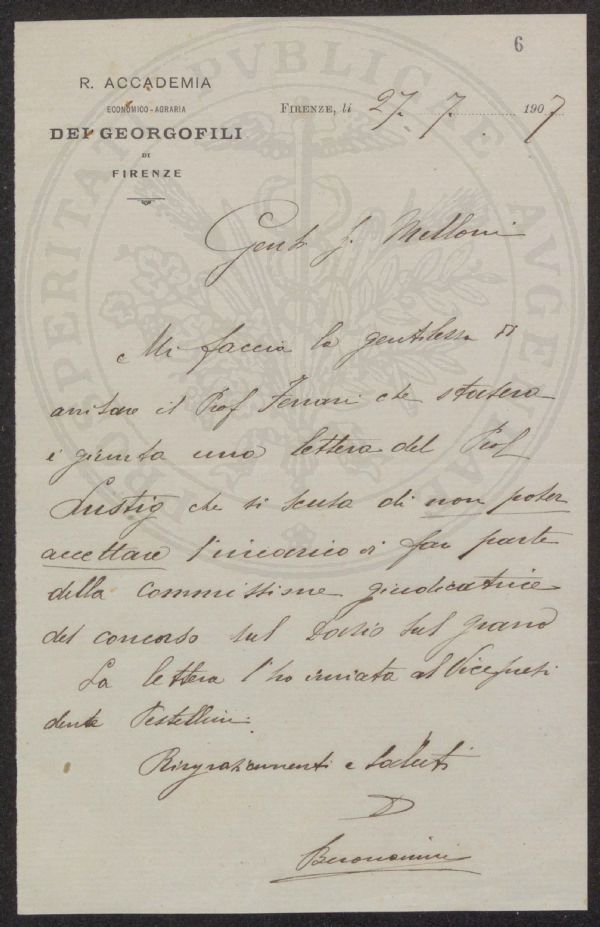 6
R. ACCADEMIA
ECONOMICO-AGRARIA
DEI GEORGOFILI
DI
FIRENZE
FIRENZE, li 27. 7. 1907
PROSPERITATI PVBLICAE AVGENDAE
Gent S. Melloni
Mi faccia la gentilezza di
avvisare il Prof Ferrari che stasera
è giunta una lettera del Prof
Lustig che si scusa di non poter
accettare l'incarico di far parte
della Commissione giudicatrice
del concorso sul Dazio sul grano
La lettera l'ho inviata al Vicepresi
dente Pestellini.
Ringraziamenti e saluti
D